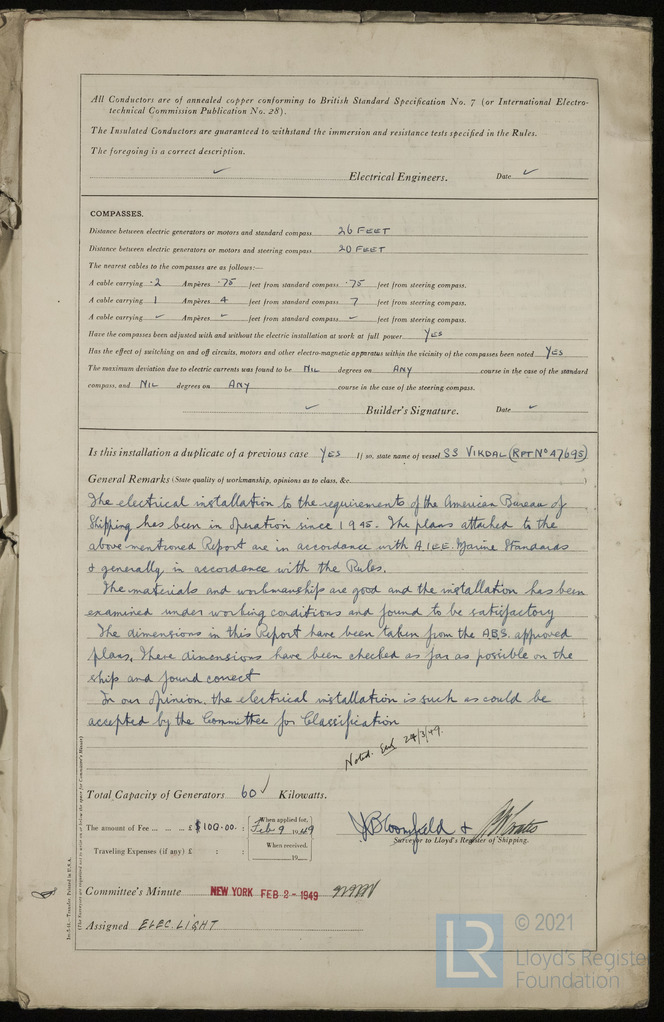 All Conductors are of annealed copper conforming to British Standard Specification No. 7 (or International Electro-
technical Commission Publication No. 28).
The Insulated Conductors are guaranteed to withstand the immersion and resistance tests specified in the Rules.
The foregoing is a correct description.
✓ Electrical Engineers. Date ✓
COMPASSES.
Distance between electric generators or motors and standard compass 26 FEET
Distance between electric generators or motors and steering compass 20 FEET
The nearest cables to the compasses are as follows:—
A cable carrying .2 Ampères .75 feet from standard compass .75 feet from steering compass.
A cable carrying 1 Ampères 4 feet from standard compass 7 feet from steering compass.
A cable carrying ✓ Ampères ✓ feet from standard compass ✓ feet from steering compass.
Have the compasses been adjusted with and without the electric installation at work at full power YES
Has the effect of switching on and off circuits, motors and other electro-magnetic apparatus within the vicinity of the compasses been noted YES
The maximum deviation due to electric currents was found to be NIL degrees on ANY course in the case of the standard
compass, and NIL degrees on ANY course in the case of the steering compass.
✓ Builder's Signature. Date ✓
Is this installation a duplicate of a previous case YES If so, state name of vessel SS VIKDAL (RPT No 47695)
General Remarks (State quality of workmanship, opinions as to class, &c. )
The electrical installation to the requirements of the American Bureau of
Shipping has been in operation since 1945. The plans attached to the
above mentioned Report are in accordance with A.I.E.E. Marine Standards
& generally in accordance with the Rules.
The materials and workmanship are good and the installation has been
examined under working conditions and found to be satisfactory
The dimensions in this Report have been taken from the ABS approved
plans. These dimensions have been checked as far as possible on the
ship and found correct
In our opinion, the electrical installation is such as could be
accepted by the Committee for Classification
Noted. 24/3/49.
Total Capacity of Generators 60 ✓ Kilowatts.
The amount of Fee ... ... ... £ $100.00. : When applied for, Feb 9 1949
Traveling Expenses (if any) £ : : When received, 19
J Bloomfield &
Surveyor to Lloyd's Register of Shipping.
Committee's Minute NEW YORK FEB 2 - 1949
Assigned ELEC. LIGHT
(The Surveyors are requested not to write on or below the space for Committee's Minute)
LR © 2021
Lloyd's Register
Foundation